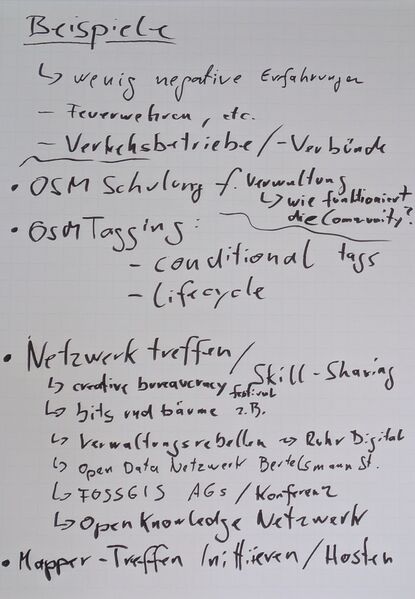 Beispiele
↳ wenig negative Erfahrungen
- Feuerwehren, etc.
- Verkehsbetriebe/-Verbünde
• OSM Schulung f. Verwaltung
↳ wie funktioniert
die Comunity?
• OSM Tagging:
- conditional tags
- lifecycle
• Netzwerk treffen/
Skill-Sharing
↳ creative bureaucracy festival
↳ bits und bäume z.B.
↳ Verwaltungsrebellen => Ruhr Digital
↳ Open Data Netzwerk Bertelsmann St.
↳ FOSSGIS AGs / Konferenz
↳ Open Knowledge Netzwerk
• Mapper-Treffen Initiieren/Hosten